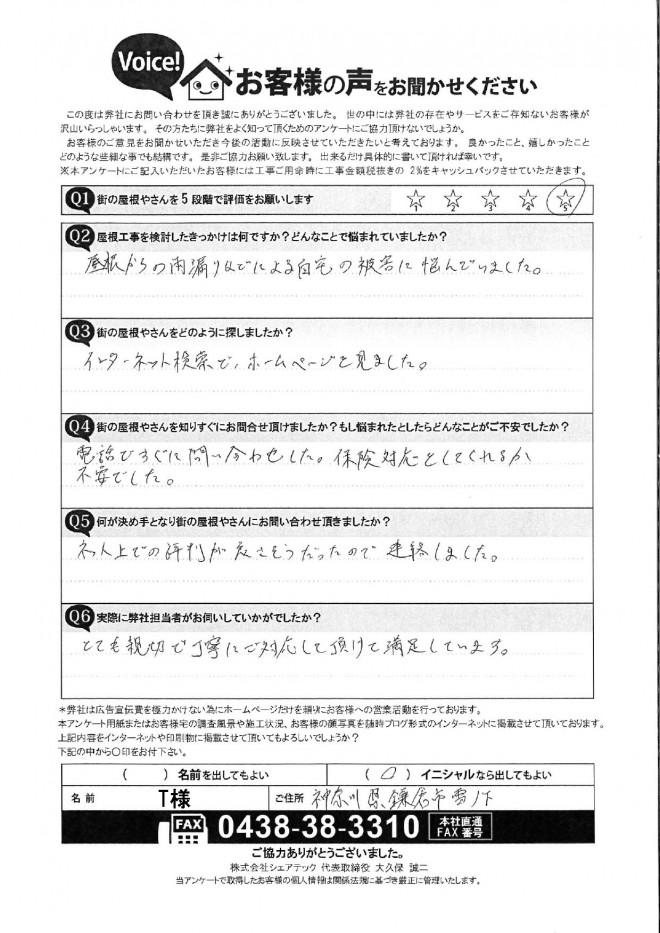 Voice!
お客様の声をお聞かせください
この度は弊社にお問い合わせを頂き誠にありがとうございました。 世の中には弊社の存在やサービスをご存知ないお客様が
沢山いらっしゃいます。 その方たちに弊社をよく知って頂くためのアンケートにご協力頂けないでしょうか。
お客様のご意見をお聞かせいただき今後の活動に反映させていきたいと考えております。 良かったこと、嬉しかったこと
どのような些細な事でも結構です。 是非ご協力お願い致します。 出来るだけ具体的に書いて頂ければ幸いです。
※本アンケートにご記入いただいたお客様には工事ご用命時に工事金額税抜きの 2%をキャッシュバックさせていただきます。
Q1 街の屋根やさんを5段階で評価をお願いします
1 2 3 4 5
Q2 屋根工事を検討したきっかけは何ですか？どんなことで悩まれていましたか？
屋根からの雨漏りなどによる自宅の被害に悩んでいました。
Q3 街の屋根やさんをどのように探しましたか？
インターネット検索で、ホームページを見ました。
Q4 街の屋根やさんを知りすぐにお問合せ頂けましたか？もし悩まれたとしたらどんなことがご不安でしたか？
電話ですぐに問い合わせした。保険対応としてくれるか
不安でした。
Q5 何が決め手となり街の屋根やさんにお問い合わせ頂きましたか？
ネット上での評判が良さそうだったので連絡しました。
Q6 実際に弊社担当者がお伺いしていかがでしたか？
とても親切で丁寧にご対応して頂けて満足しています。
＊弊社は広告宣伝費を極力かけない為にホームページだけを頼りにお客様への営業活動を行っております。
本アンケート用紙またはお客様宅の調査風景や施工状況、お客様の顔写真を随時ブログ形式のインターネットに掲載させて頂いております。
上記内容をインターネットや印刷物に掲載させて頂いてもよろしいでしょうか？
下記の中から〇印をお付下さい。
（　）名前を出してもよい
（〇）イニシャルなら出してもよい
名 前 T様
ご住所 神奈川県鎌倉市雪ノ下
FAX 0438-38-3310 本社直通 FAX 番号
ご協力ありがとうございました。
株式会社シェアテック 代表取締役 大久保 誠二
当アンケートで取得したお客様の個人情報は関係法規に基づき厳正に管理いたします。